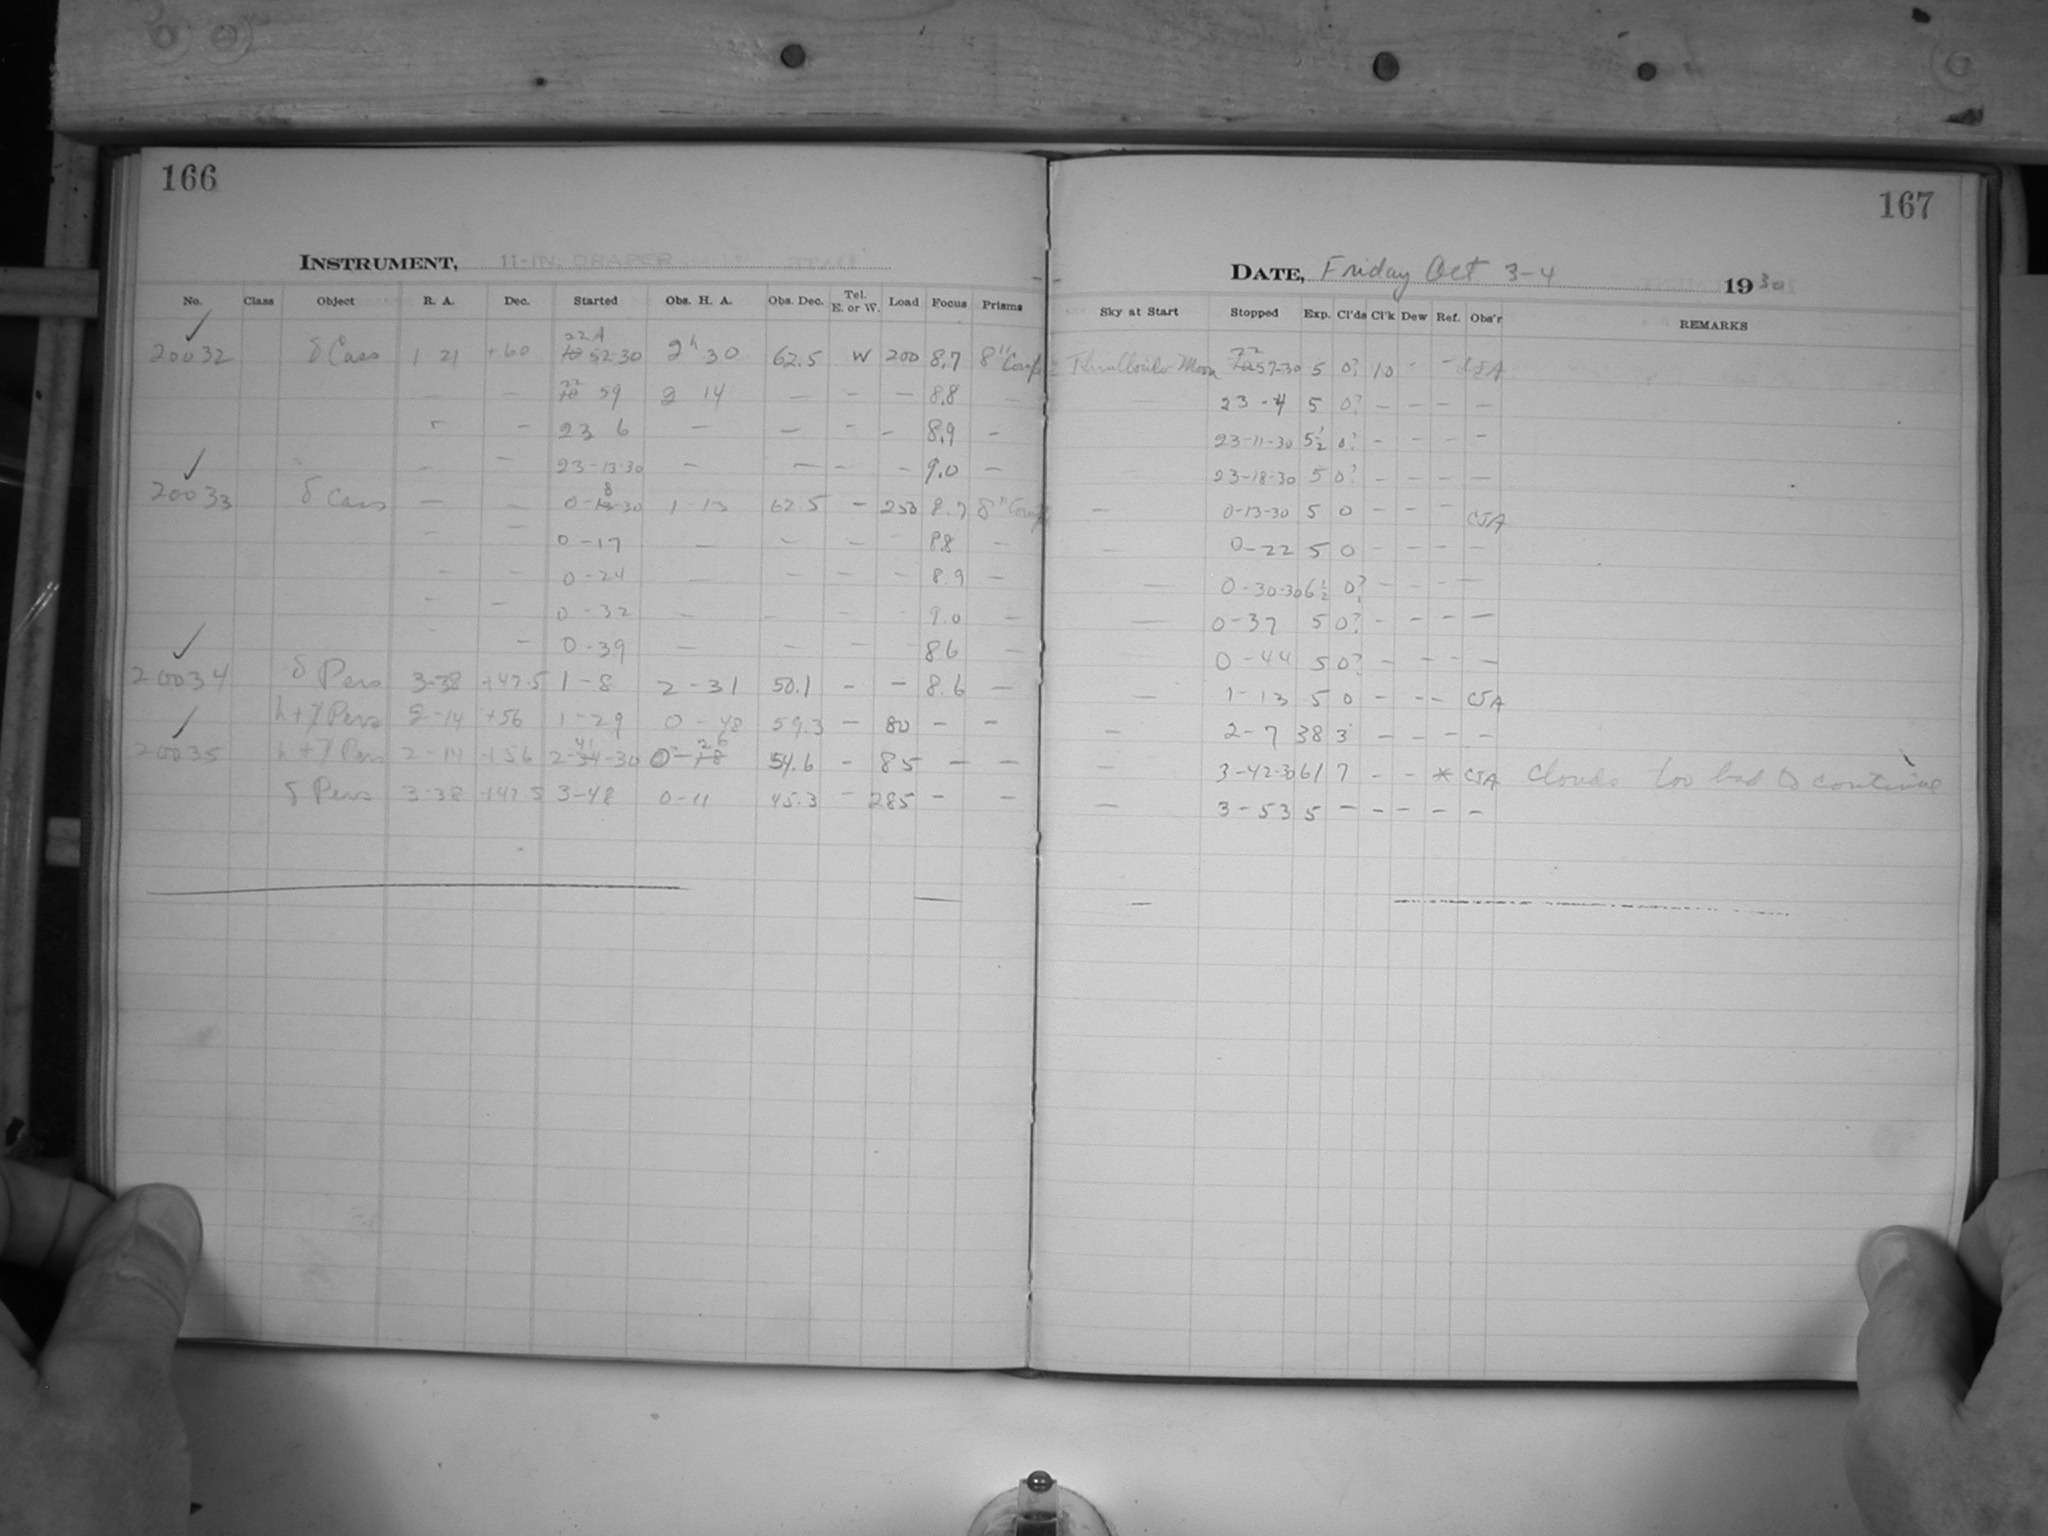 166
INSTRUMENT, 11-IN. DRAPER
No. Class Object R. A. Dec. Started Obs. H. A. Obs. Dec. Tel. E. or W. Load Focus Prisms
20032 δ Cass 1 21 +60 22 52-30 2h 30 62.5 W 200 8.7 8"
— — 22 59 2 14 — — — 8.8 —
— 23 6 — — - - 8.9 —
- — 23-13-30 — — - - 9.0 —
20033 δ Cass — — 0-8-30 1-13 62.5 — 250 8.7 8"
- — 0-17 — — — - 8.8 —
- — 0-24 — — — - 8.9 —
- — 0-32 — — - - 9.0 —
- — 0-39 — — — - 8.6 —
20034 δ Pers 3-38 +47.5 1-8 2-31 50.1 - — 8.6 —
h+χ Pers 2-14 +56 1-29 0-48 59.3 — 80 — —
20035 h+χ Pers 2-14 +56 2-41-30 0-26 54.6 - 85 — —
δ Pers 3-38 +47.5 3-48 0-11 45.3 — 285 — —
167
DATE, Friday Oct 3-4 1930
Sky at Start Stopped Exp. Cl'ds Cl'k Dew Ref. Obs'r REMARKS
Thin Clouds Moon 22 57-30 5 0? 10 - - CJA
23-4 5 0? — — — —
23-11-30 5½ 0? - - - —
23-18-30 5 0? - - - —
— 0-13-30 5 0 - - - CJA
— 0-22 5 0 - - - —
— 0-30-30 6½ 0? - - - —
— 0-37 5 0? - - - —
0-44 5 0? - - - —
— 1-13 5 0 - - - CJA
— 2-7 38 3 - - - -
— 3-42-30 61 7 - - * CJA Clouds too bad to continue
— 3-53 5 — — — — —